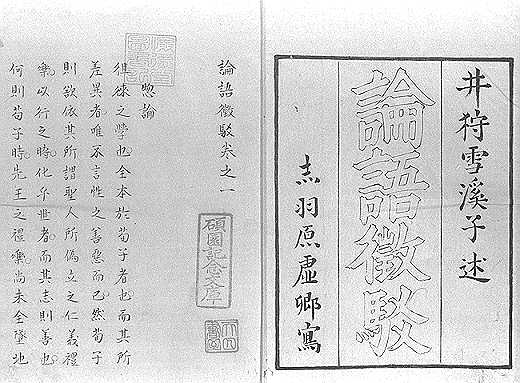 井狩雪溪子述
論語徵駁
志羽原虚卿寫
論語徵駁巻之一
惣論
徂徠之學也全本於荀子者也而其所
差異者唯不言性之善惡而已然荀子
則欲依其所謂聖人所偽立之仁義禮
樂以行之時化于世者而其志則善也
何則荀子時先王之禮樂尚未全墜地
碩園記念文庫